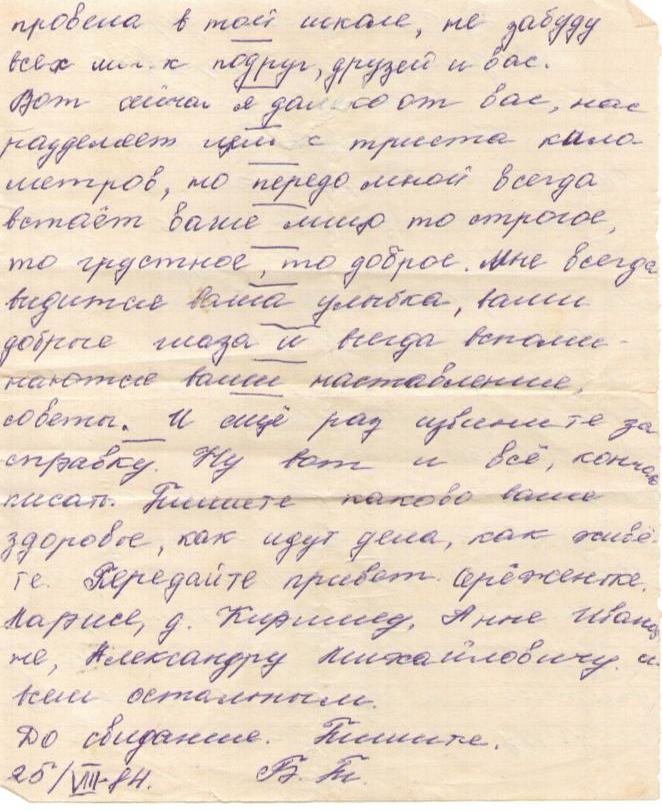 провела в той школе, не забуду
всех моих подруг, друзей и вас.
Вот сейчас я далеко от вас, нас
разделяет целых триста кило-
метров, но передо мной всегда
встаёт ваше лицо то строгое,
то грустное, то доброе. Мне всегда
видится ваша улыбка, ваши
добрые глаза и всегда вспоми-
наются ваши наставления,
советы. И ещё раз извините за
справку. Ну вот и всё, кончаю
писать. Пишите каково ваше
здоровье, как идут дела, как живё-
те. Передайте привет Серёженьке,
Ларисе, д. Анне
не, Александру Михайловичу и
всем остальным.
До свидания. Пишите.
25/VIII-84.